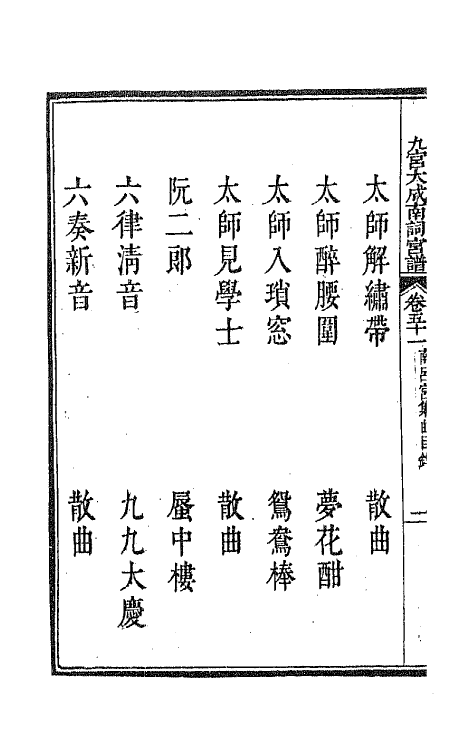 九宮大成南詞宮譜 卷五十一 南呂宮集曲目錄 二
太師解繡帶 散曲
太師醉腰圍 夢花酣
太師入瑣窓 鴛鴦棒
太師見學士 散曲
阮二郎 蜃中樓
六律清音 九九大慶
六奏新音 散曲